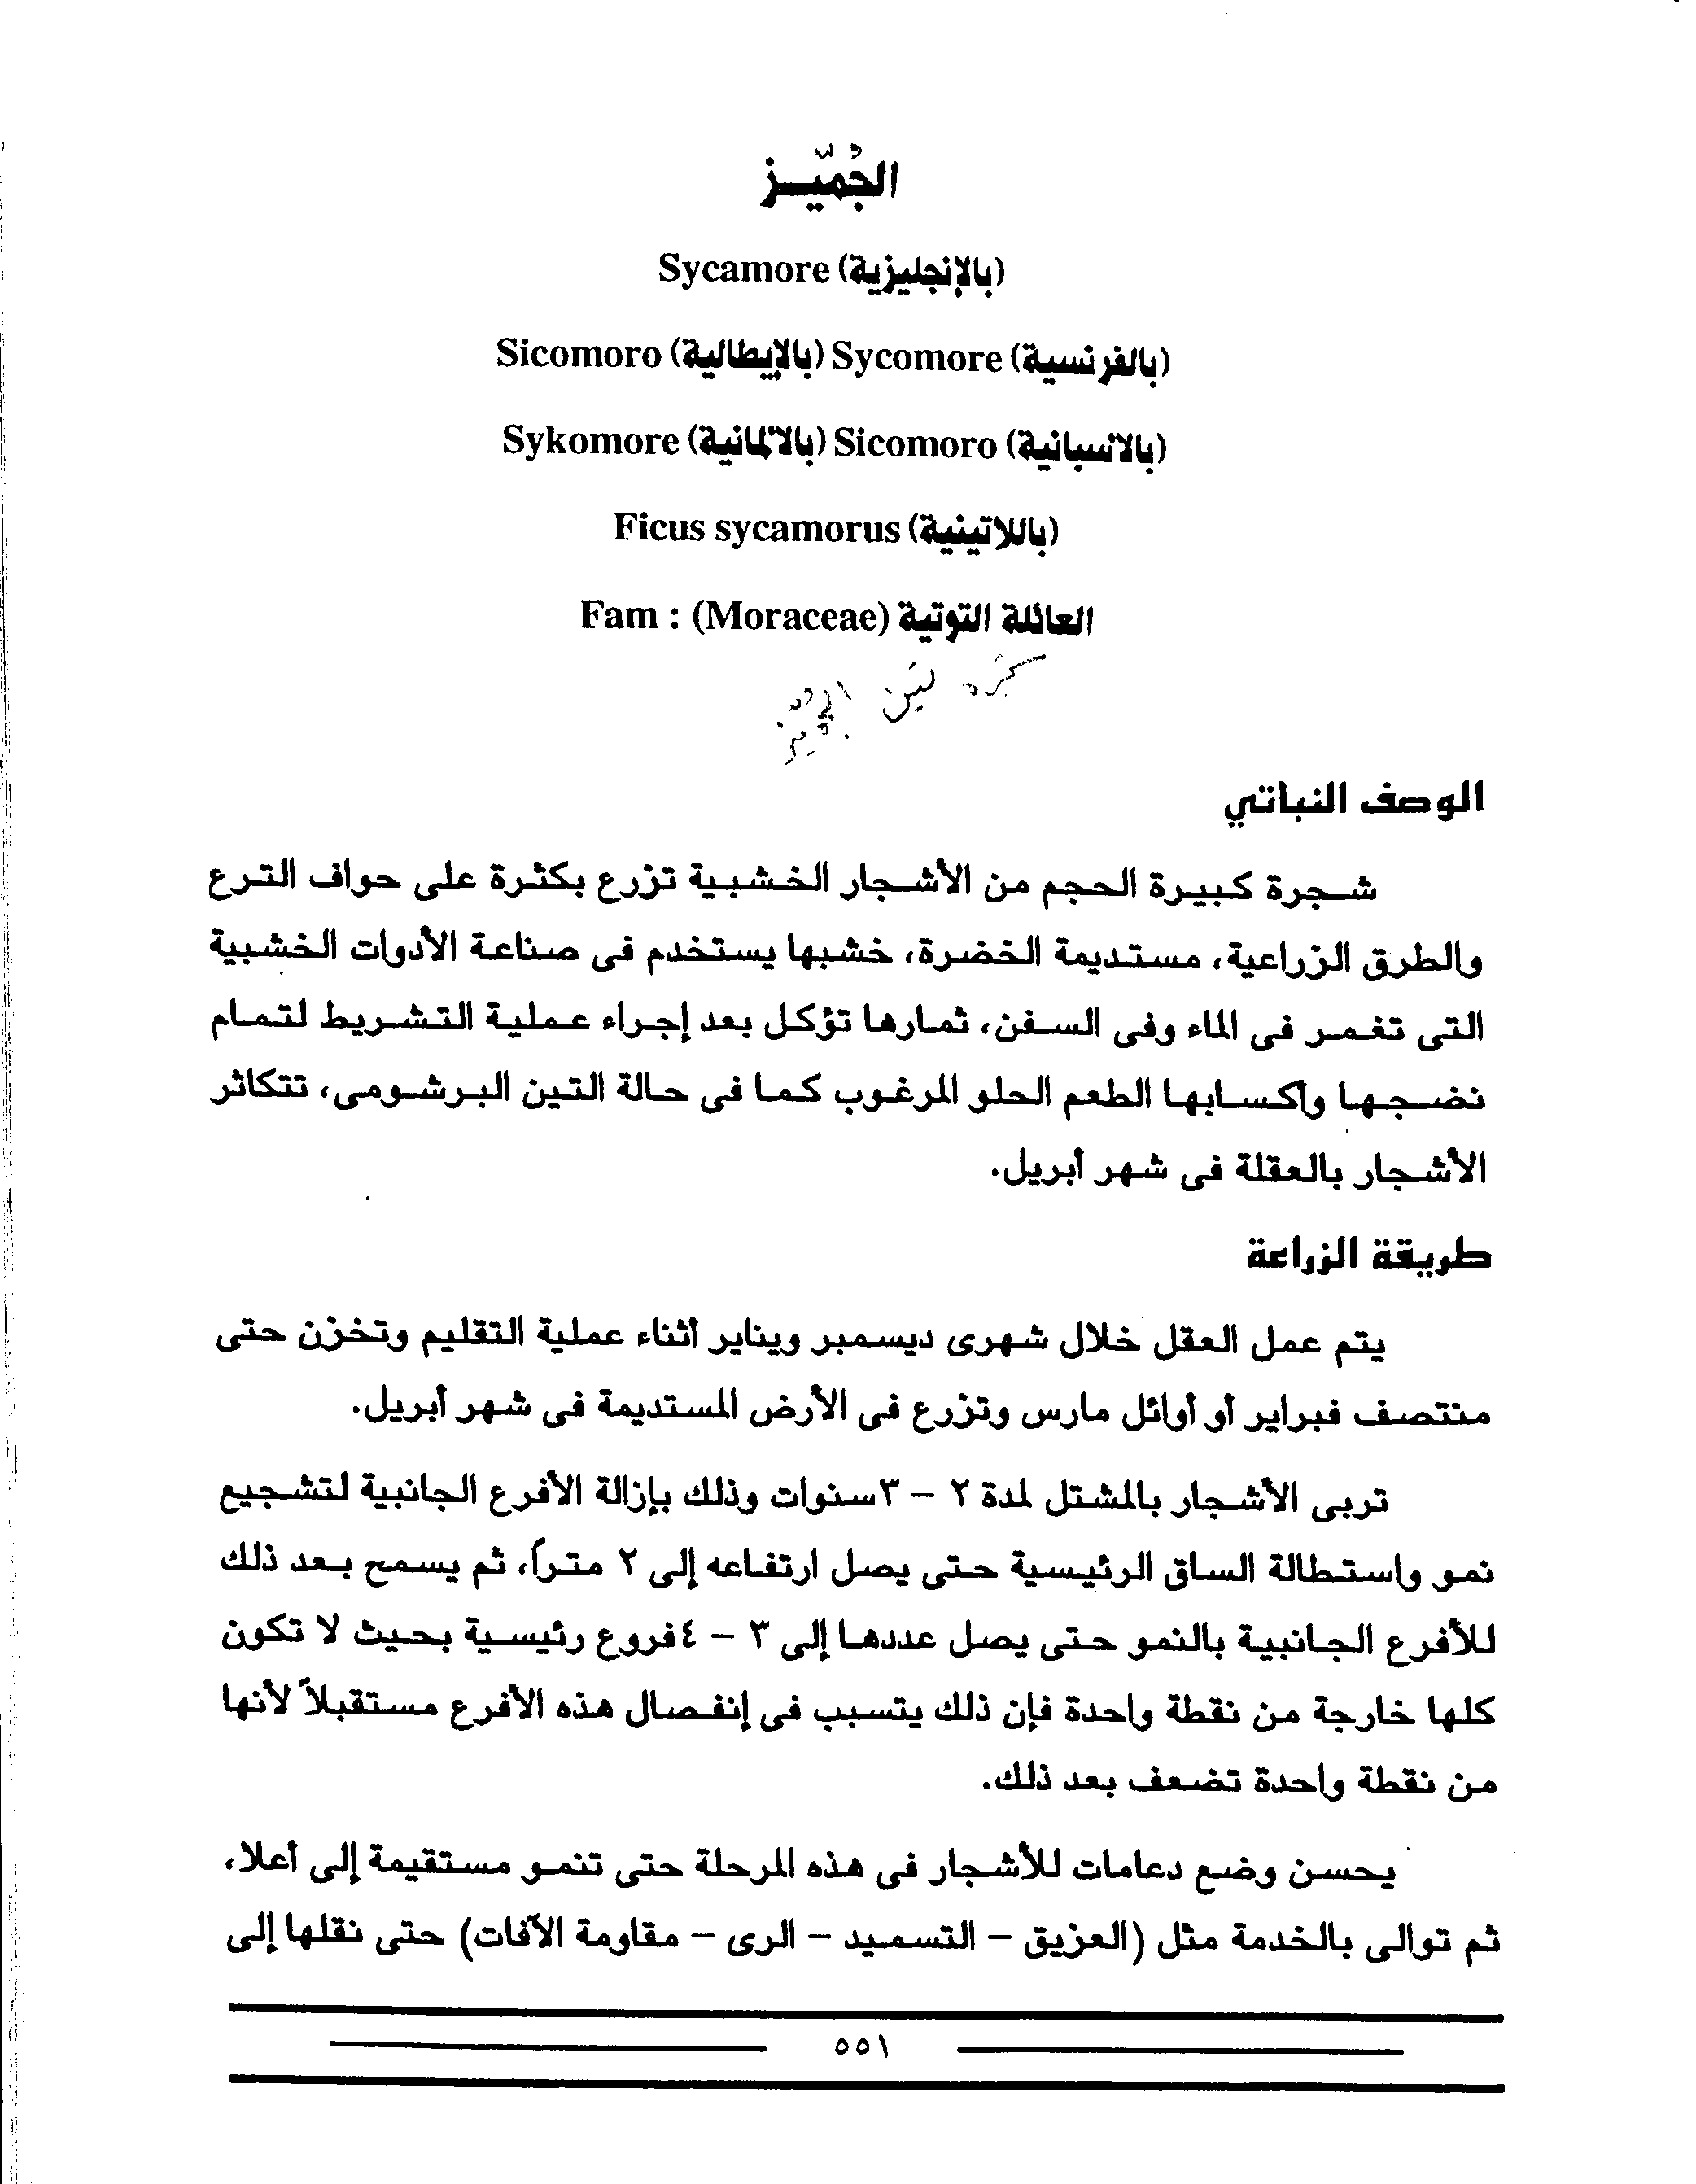 الجُمّيـز
(بالإنجليزية) Sycamore
(بالفرنسية) Sycomore (بالإيطالية) Sicomoro
(بالاسبانية) Sicomoro (بالالمانية) Sykomore
(باللاتينية) Ficus sycamorus
العائلة التوتية Fam : (Moraceae)
الوصف النباتي
شجرة كبيرة الحجم من الأشجار الخشبية تزرع بكثرة على حواف الترع
والطرق الزراعية، مستديمة الخضرة، خشبها يستخدم فى صناعة الأدوات الخشبية
التى تغمر فى الماء وفى السفن، ثمارها تؤكل بعد إجراء عملية التشريط لتمام
نضجها وأكسابها الطعم الحلو المرغوب كما فى حالة التين البرشومى، تتكاثر
الأشجار بالعقلة فى شهر أبريل.
طريقة الزراعة
يتم عمل العقل خلال شهرى ديسمبر ويناير أثناء عملية التقليم وتخزن حتى
منتصف فبراير أو أوائل مارس وتزرع فى الأرض المستديمة فى شهر أبريل.
تربى الأشجار بالمشتل لمدة ٢ – ٣سنوات وذلك بإزالة الأفرع الجانبية لتشجيع
نمو واستطالة الساق الرئيسية حتى يصل ارتفاعه إلى ٢ متراً، ثم يسمح بعد ذلك
للأفرع الجانبية بالنمو حتى يصل عددها إلى ٣ – ٤فروع رئيسية بحيث لا تكون
كلها خارجة من نقطة واحدة فإن ذلك يتسبب فى إنفصال هذه الأفرع مستقبلاً لأنها
من نقطة واحدة تضعف بعد ذلك.
يحسن وضع دعامات للأشجار فى هذه المرحلة حتى تنمو مستقيمة إلى أعلا،
ثم توالى بالخدمة مثل (العزيق – التسميد – الرى – مقاومة الآفات) حتى نقلها إلى
٥٥١